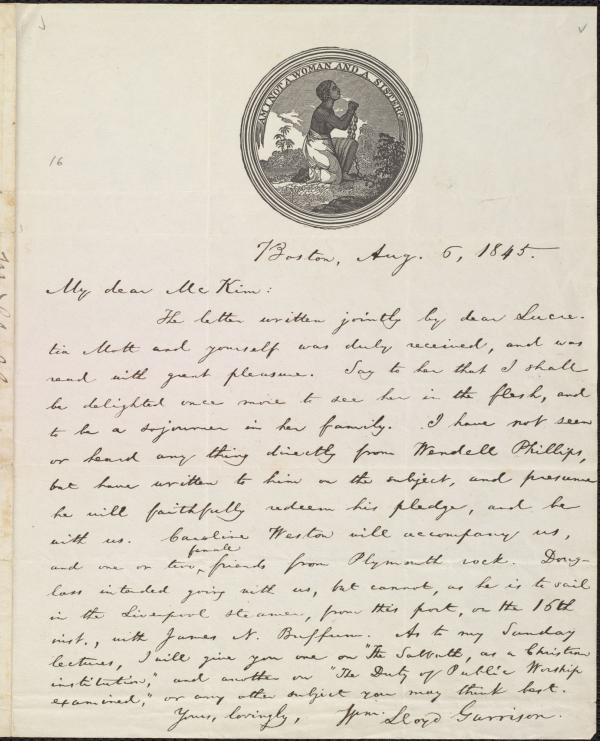 AM I NOT A WOMAN AND A SISTER?
16
Boston, Aug. 6, 1845.
My dear McKim:
The letter written jointly by dear Lucre-
tia Mott and yourself was duly received, and was
read with great pleasure. Say to her that I shall
be delighted once more to see her in the flesh, and
to be a sojourner in her family. I have not seen
or heard any thing directly from Wendell Phillips,
but have written to him on the subject, and presume
he will faithfully redeem his pledge, and be
with us. Caroline Weston will accompany us,
female
and one or two ‸ friends from Plymouth rock. Doug-
lass intended going with us, but cannot, as he is to sail
in the Liverpool steamer, from this port, on the 16th
inst., with James N. Buffum. As to my Sunday
lectures, I will give you one on "The Sabbath, as a Christian
institution," and another on "The Duty of Public Worship
examined," or any other subject you may think best.
Yours, lovingly, Wm. Lloyd Garrison.